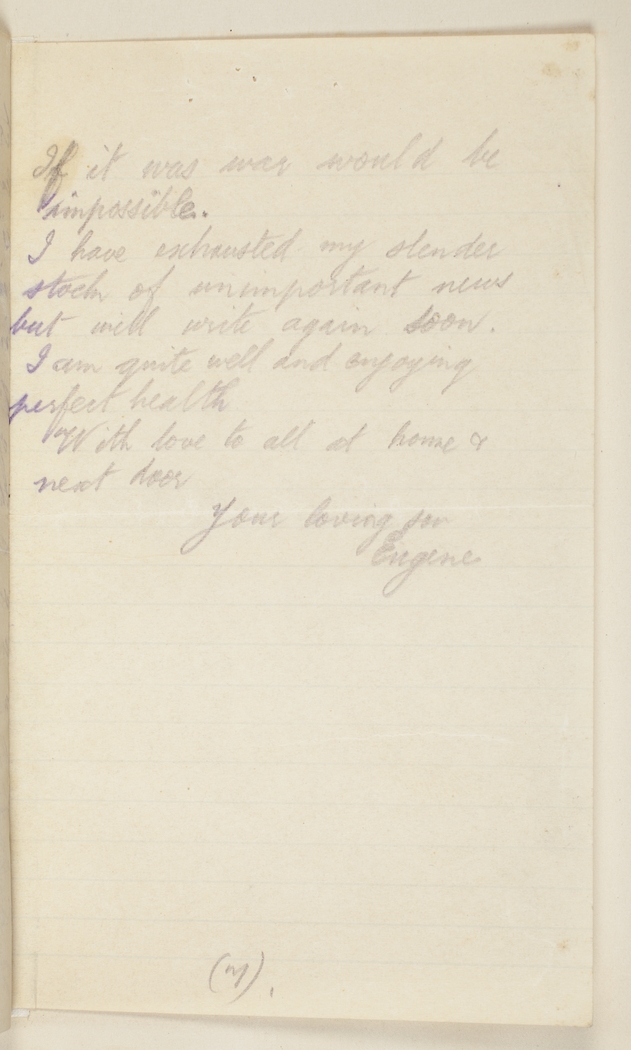 If it was war would be
impossible.
I have exhausted my slender
stock of unimportant news
but will write again soon.
I am quite well and enjoying
perfect health
With love to all at home &
next door
Your loving son
Eugene